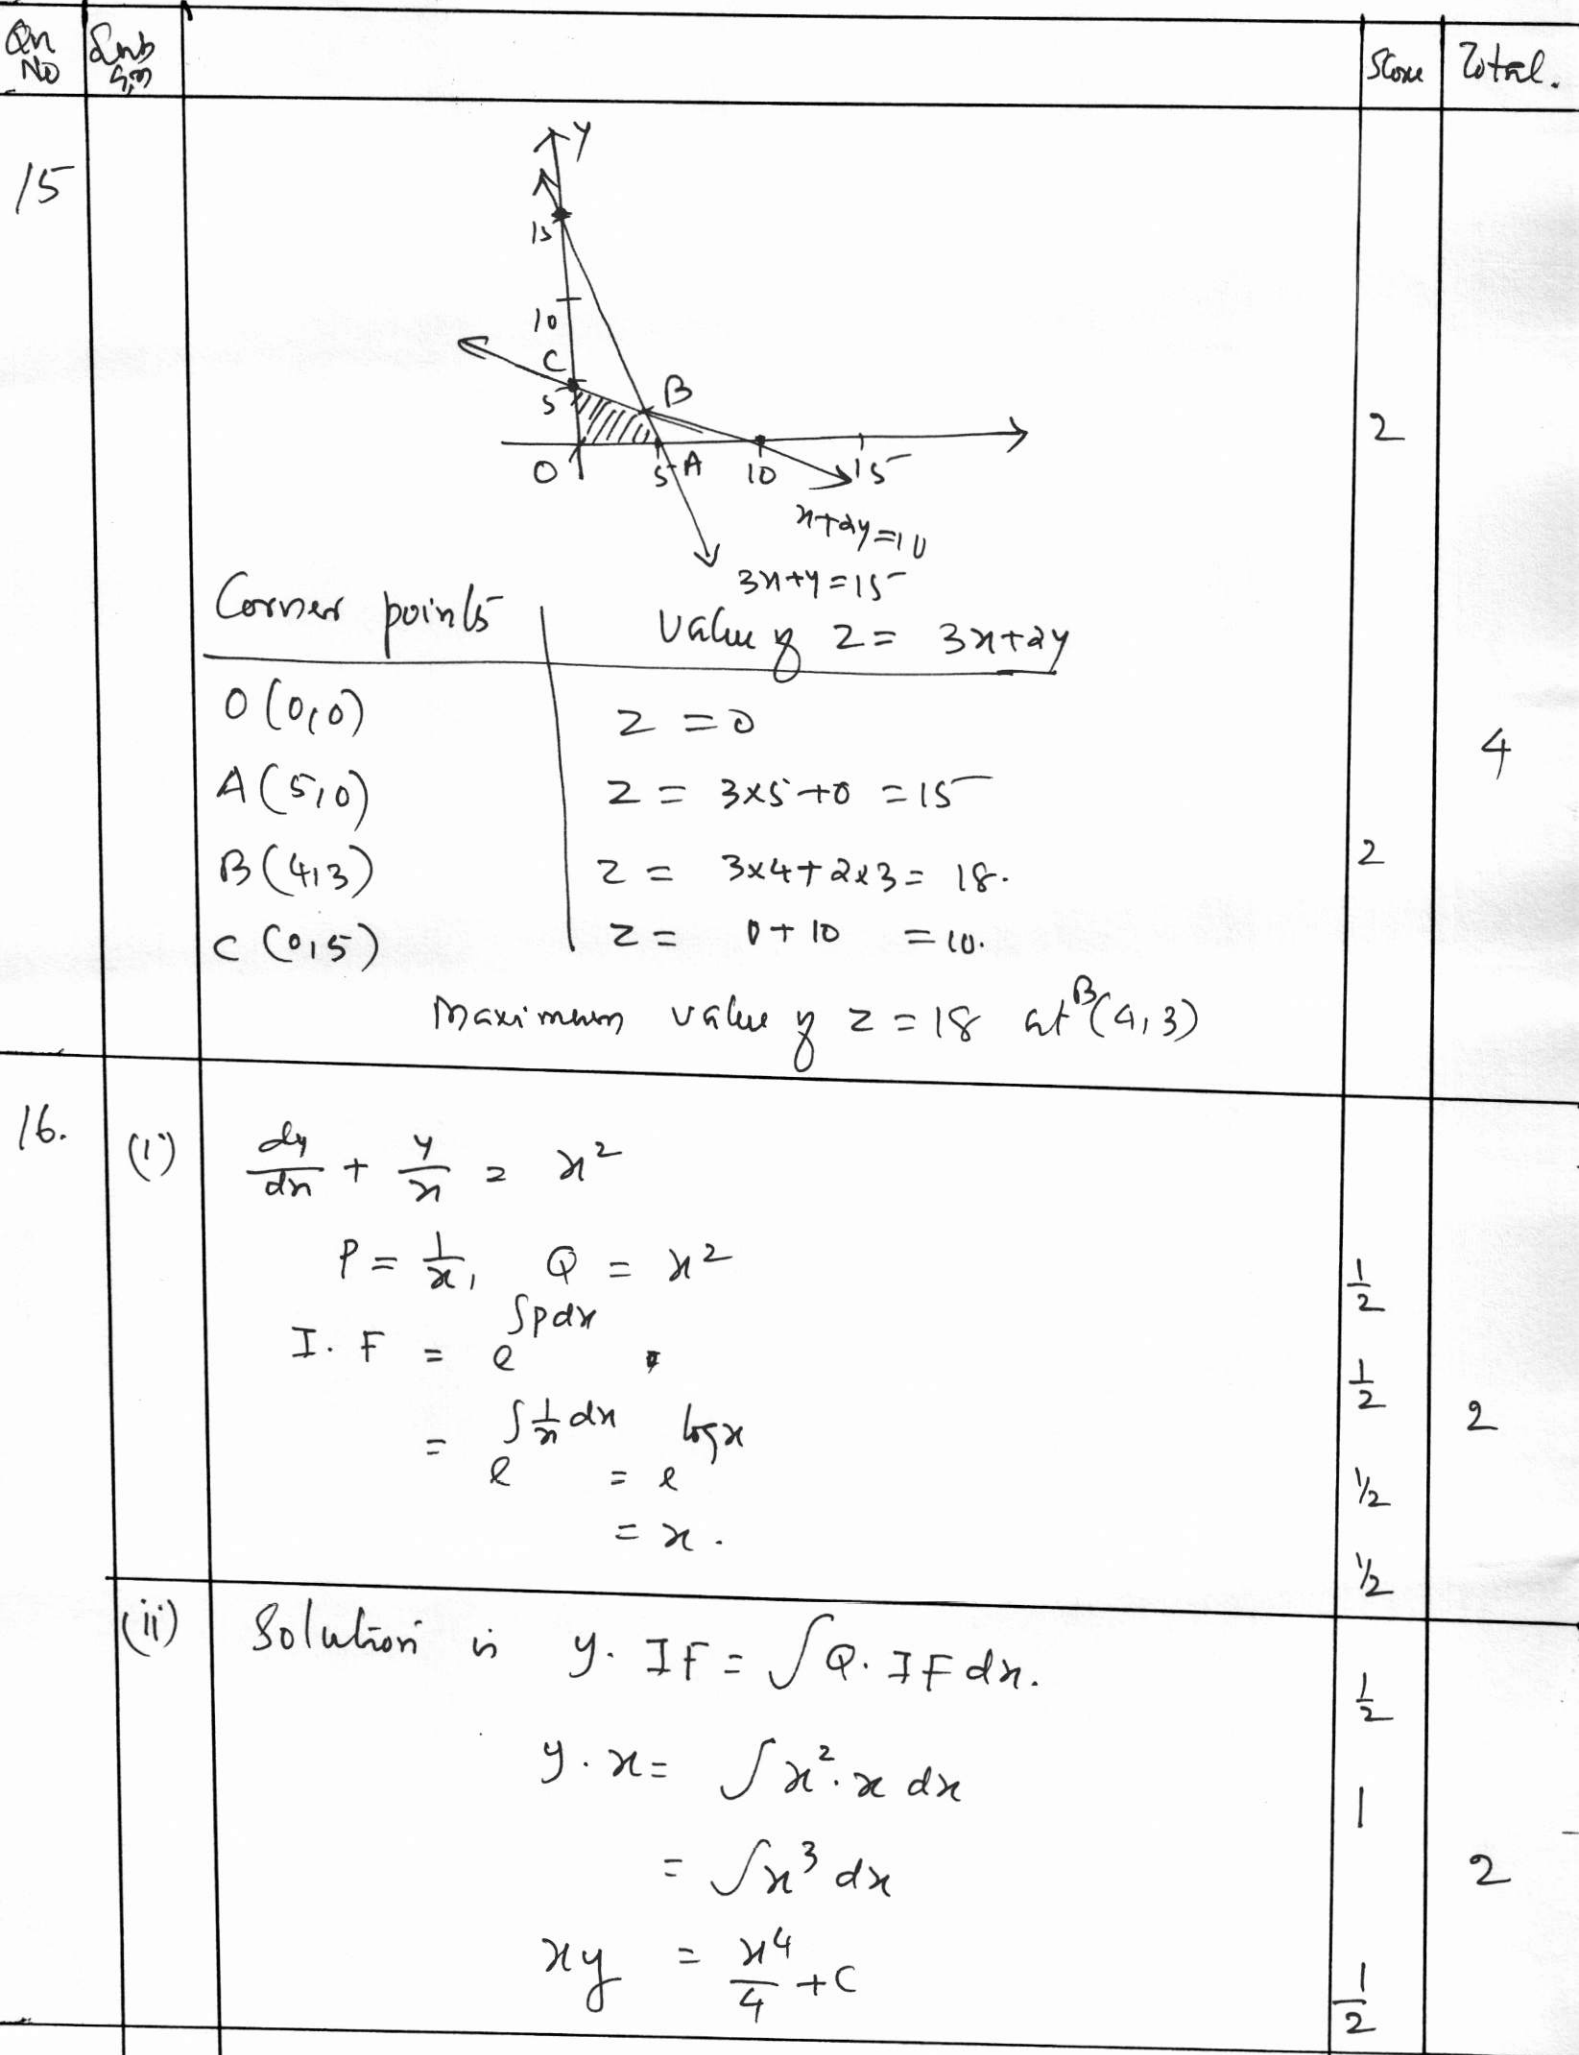 Qn No
Sub Qn
Score
Total.
15
Y
15
10
C
5
B
O
5 A
10
15
x+2y=10
3x+y=15
2
Corner points
Value of Z = 3x+2y
O(0,0)
Z = 0
A(5,0)
Z = 3x5+0 = 15
B(4,3)
Z = 3x4+2x3 = 18.
C(0,5)
Z = 0+10 = 10.
2
4
Maximum value of Z = 18 at B(4,3)
16.
(i)
dy/dx + y/x = x²
P = 1/x, Q = x²
1/2
I.F = e^∫pdx
1/2
= e^∫1/x dx = e^logx
1/2
= x.
1/2
2
(ii)
Solution is y. IF = ∫Q. IF dx.
1/2
y.x = ∫x².x dx
1
= ∫x³ dx
2
xy = x⁴/4 + C
1/2